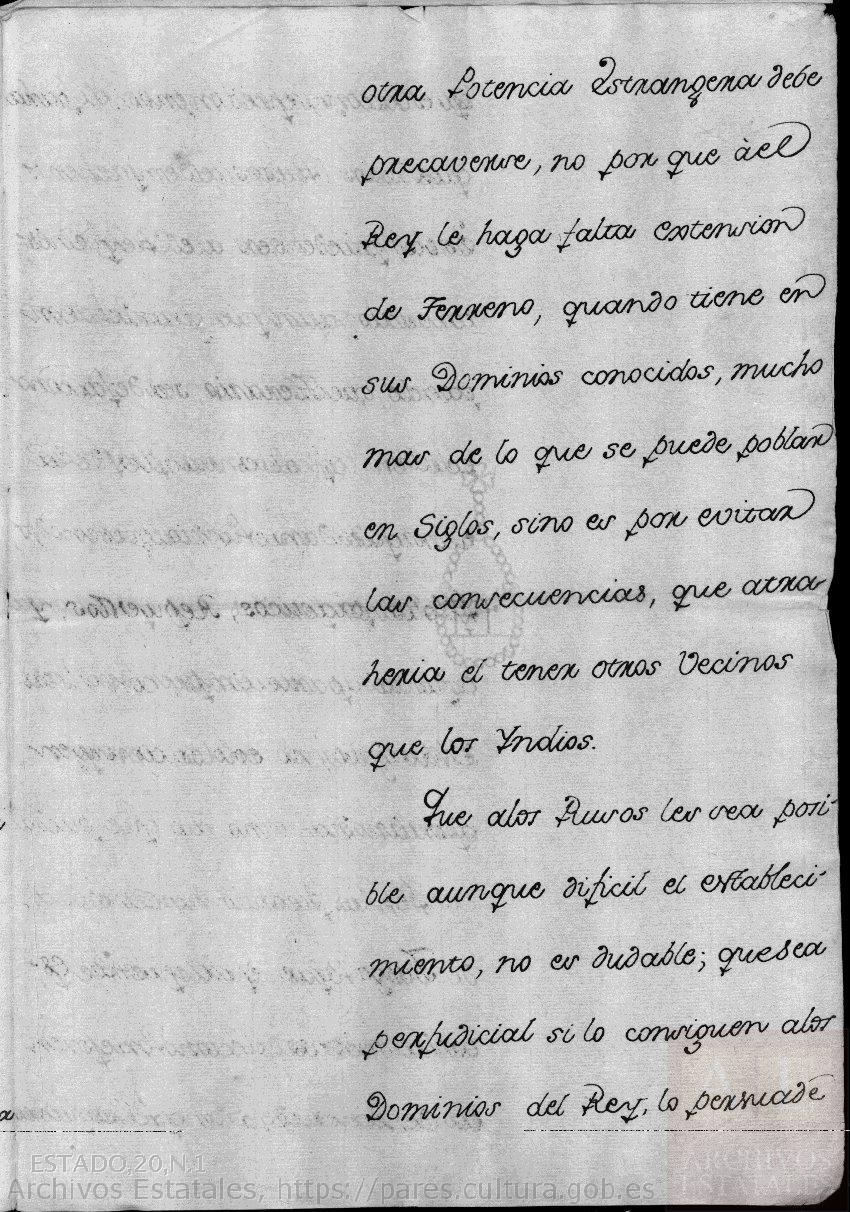 otra Potencia Estrangera debe
precaverse, no por que à el
Rey le haga falta extension
de Terreno, quando tiene en
sus Dominios conocidos, mucho
mas de lo que se puede poblar
en Siglos, sino es por evitar
las consecuencias, que atra
heria el tener otros Vecinos
que los Yndios.
Que alos Rusos les sea posi-
ble aunque dificil el estableci-
miento, no es dudable; que sea
perjudicial si lo consiguen alos
Dominios del Rey, lo persuade
ESTADO,20,N.1
Archivos Estatales, https://pares.cultura.gob.es
ARCHIVOS
ESTATALES